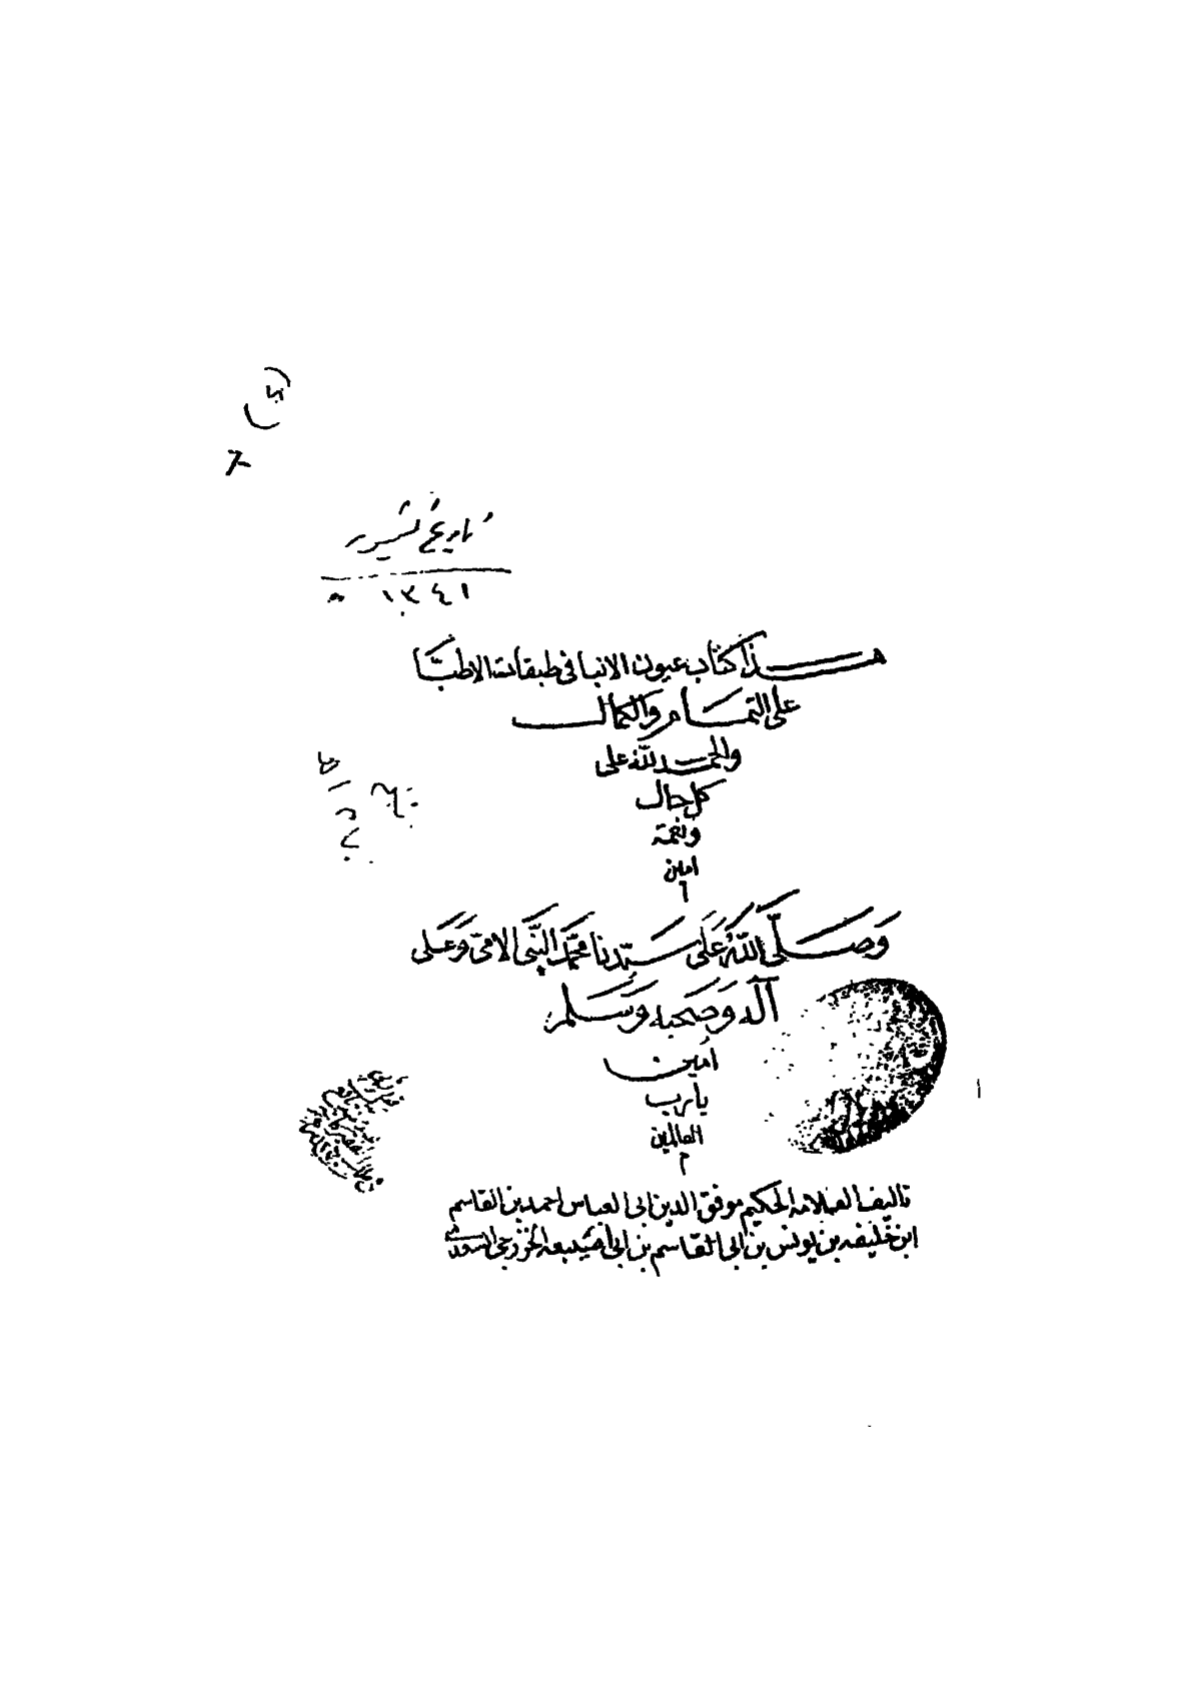 تاريخ
١٣٤١
هذا كتاب عيون الانبا في طبقات الاطبا
على التمام والكمال
والحمد لله على
كل حال
ونعمة
امين
وَصَلَّى اللّهُ عَلَى سَيِّدنا محمّد النّبي الامّي وَعَلى
آله وَصَحبه وَسَلم
امين
يارب
العالمين
م
تاليف العلامه الحكيم موفق الدين ابى العباس احمد بن القاسم
ابن خليفه بن يونس بن ابى القاسم بن ابى اصيبعه الخزرجى السعدى